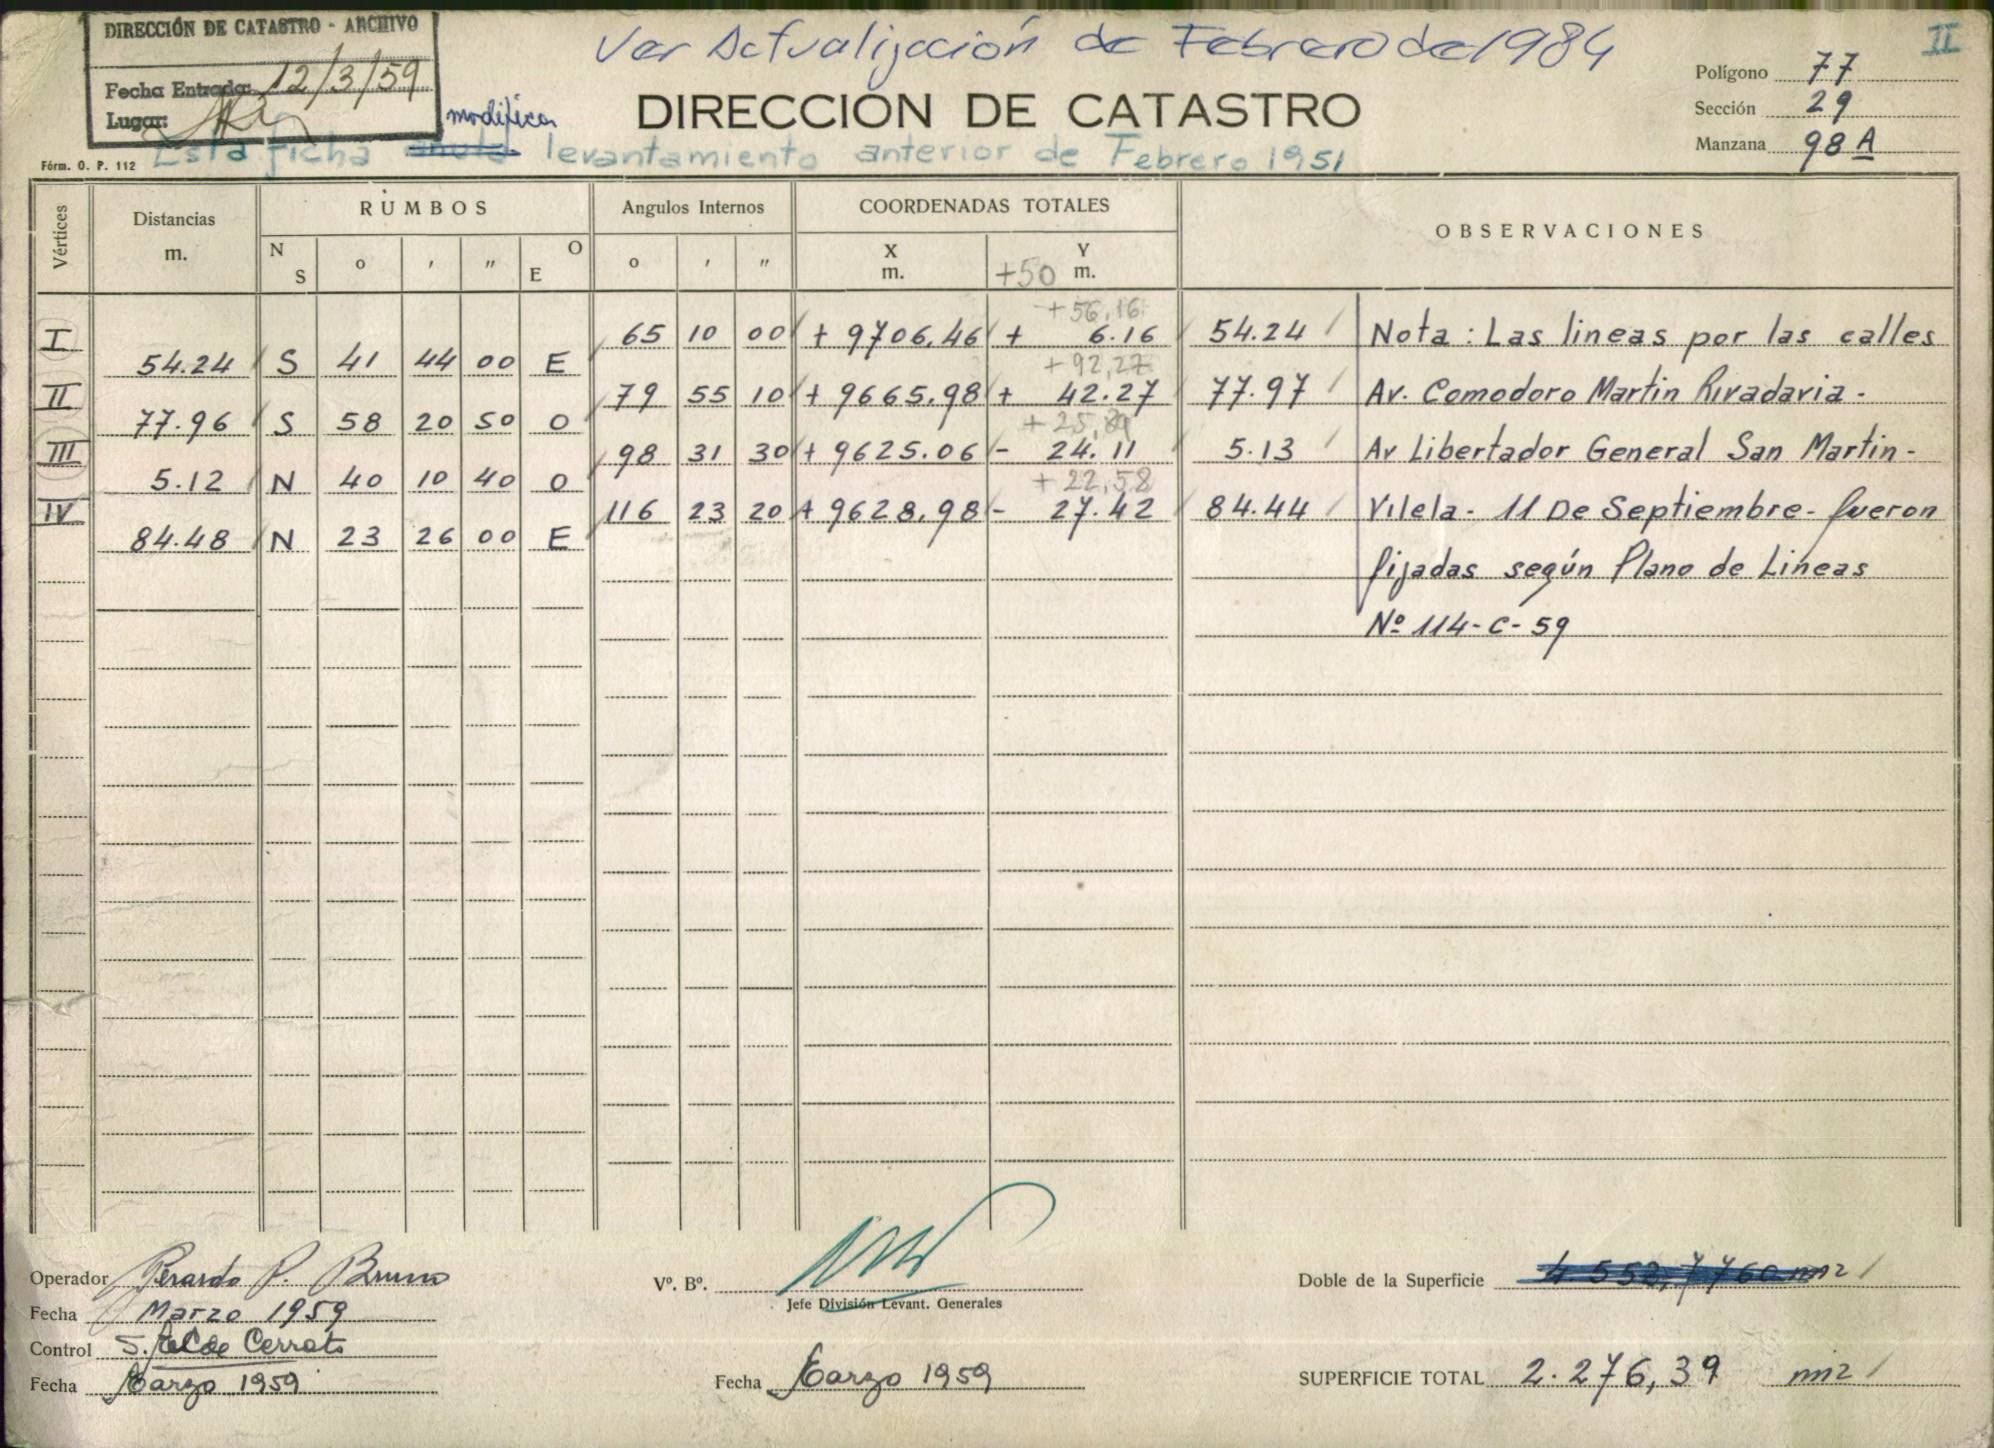 DIRECCIÓN DE CATASTRO - ARCHIVO
Fecha Entrada: 12/3/59
Lugar:
Ver Actualización de Febrero de 1984
II
Polígono 77
Sección 29
Manzana 98 A
DIRECCION DE CATASTRO
modifica
Fórm. O. P. 112
Esta ficha anula levantamiento anterior de Febrero 1951
Vértices Distancias m. RUMBOS Angulos Internos COORDENADAS TOTALES OBSERVACIONES
N S o ' " O E o ' " X m. Y m.
+50
+56,16
I 65 10 00 + 9706.46 + 6.16 54.24 Nota: Las lineas por las calles
54.24 S 41 44 00 E
+92,27
II 79 55 10 + 9665.98 + 42.27 77.97 Av. Comodoro Martin Rivadavia -
77.96 S 58 20 50 O
+25,89
III 98 31 30 + 9625.06 - 24.11 5.13 Av Libertador General San Martin -
5.12 N 40 10 40 O
+22,58
IV 116 23 20 + 9628.98 - 27.42 84.44 Vilela - 11 De Septiembre - fueron
84.48 N 23 26 00 E
fijadas según Plano de Lineas
Nº 114-C-59
Operador Gerardo P. Bruno
Fecha Marzo 1959
Control S. Cerrato
Fecha Marzo 1959
Vº. Bº.
Jefe División Levant. Generales
Fecha Marzo 1959
Doble de la Superficie 4 552,7760 m2
SUPERFICIE TOTAL 2.276,39 m2